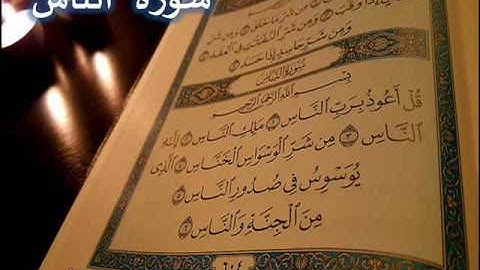 سورة الناس
مِن شَرِّ مَا خَلَقَ ۝٢ وَمِن شَرِّ
إِذَا وَقَبَ ۝٣ وَمِن شَرِّ ٱلنَّفَّٰثَٰتِ فِي ٱلْعُقَدِ ۝٤
وَمِن شَرِّ حَاسِدٍ إِذَا حَسَدَ ۝٥
سُورَةُ النَّاسِ
بِسْمِ ٱللَّهِ ٱلرَّحْمَٰنِ ٱلرَّحِيمِ
قُلْ أَعُوذُ بِرَبِّ ٱلنَّاسِ ۝١ مَلِكِ ٱلنَّاسِ ۝٢ إِلَٰهِ
ٱلنَّاسِ ۝٣ مِن شَرِّ ٱلْوَسْوَاسِ ٱلْخَنَّاسِ ۝٤ ٱلَّذِي
يُوَسْوِسُ فِي صُدُورِ ٱلنَّاسِ ۝٥
مِنَ ٱلْجِنَّةِ وَٱلنَّاسِ ۝٦
٦٠٤